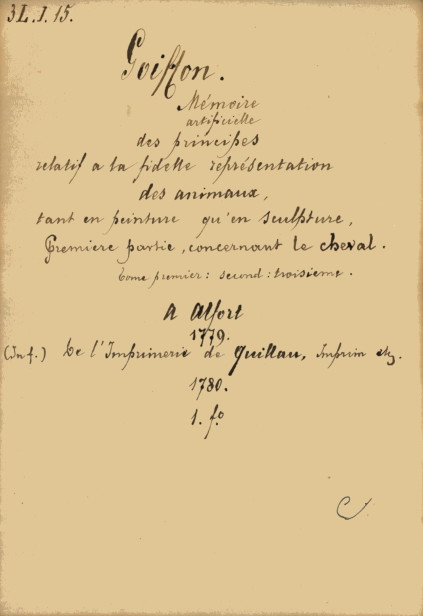 3L.1.15.
Goiffon.
Mémoire
artificielle
des principes
relatif a la fidelle représentation
des animaux,
tant en peinture qu'en sculpture,
Premiere partie, concernant le cheval.
Tome premier: second: troisieme.
A Alfort
1779.
(Inf.) De l'Imprimerie de Quillau, Imprim etz.
1780.
1. fo